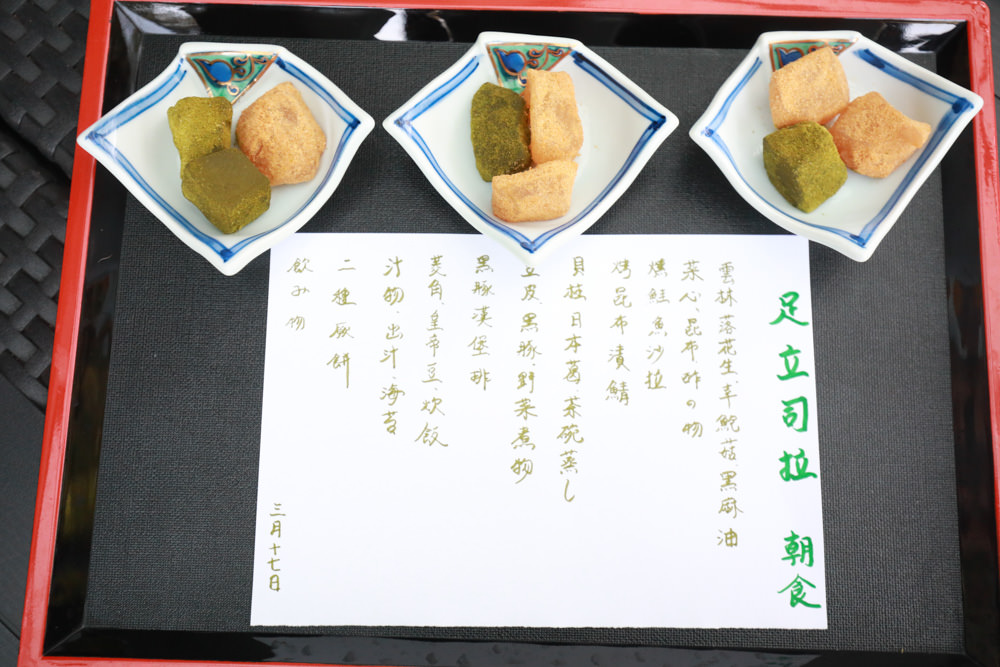 足立司拉 朝食
雲林落花生、羊鮑菇、黑麻油
菜心、昆布酢の物
燻鮭魚沙拉
烤昆布漬鯖
貝柱、日本葛、茶碗蒸し
豆皮、黑豚、野菜煮物
黑豚漢堡排
菱角、皇帝豆、炊飯
汁物、出汁、海苔
二種蕨餅
飲み物
三月十七日